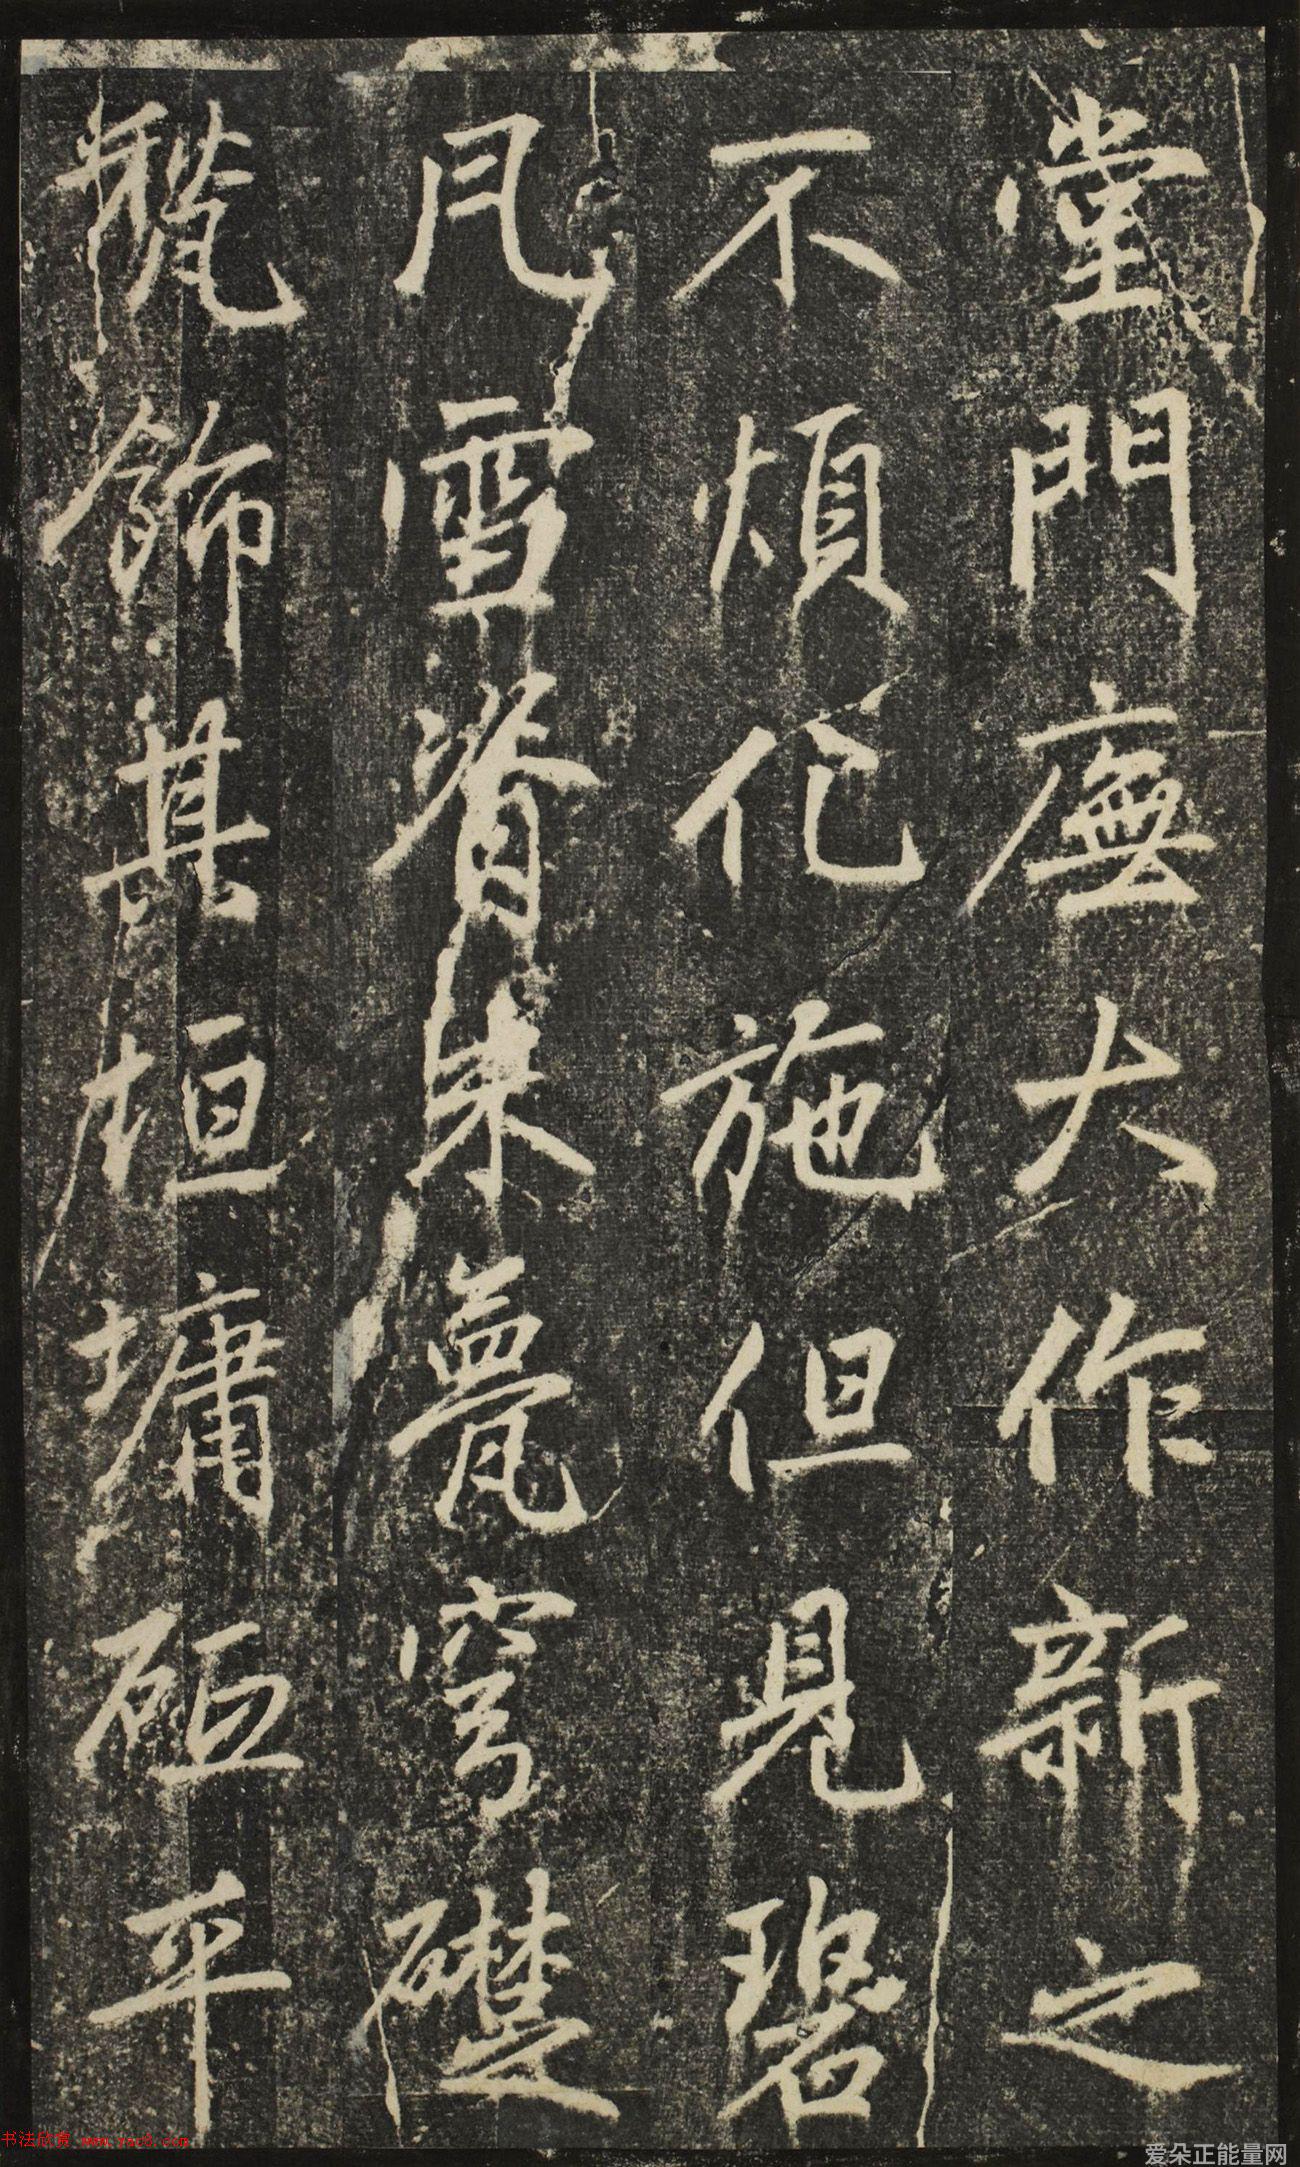 堂門廡大作新之
不煩化施但見碧
瓦雪脊朱甍穹礎
甃飾其垣墉砥平
书法欣赏 www.yac8.com
爱朵正能量网